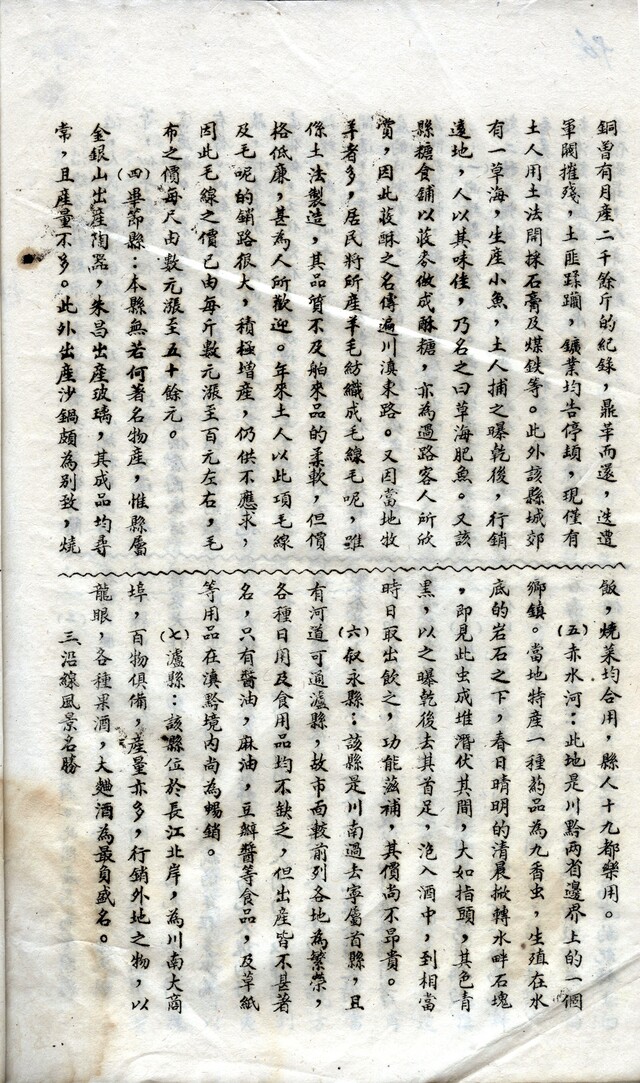 銅曾有月產二千餘斤的紀錄，鼎革而還，迭遭
軍閥摧殘，土匪蹂躪，鑛業均告停頓，現僅有
土人用土法開採石膏及煤鉄等。此外該縣城郊
有一草海，生產小魚，土人捕之曝乾後，行銷
遠地，人以其味佳，乃名之曰草海肥魚。又該
縣糖食舖以蕎麥做成酥糖，亦為過路客人所欣
賞，因此蕎酥之名傳遍川滇東路。又因當地牧
羊者多，居民將所產羊毛紡織成毛線毛呢，雖
係土法製造，其品質不及舶來品的柔軟，但價
格低廉，甚為人所歡迎。年來土人以此項毛線
及毛呢的銷路很大，積極增產，仍供不應求，
因此毛線之價已由每斤數元漲至百元左右，毛
布之價每尺由數元漲至五十餘元。
(四)畢節縣：本縣無若何著名物產，惟縣屬
金銀山出產陶器，朱昌出產玻璃，其成品均尋
常，且產量不多。此外出產沙鍋頗為別致，燒
飯，燒菜均合用，縣人十九都樂用。
(五)赤水河：此地是川黔兩省邊界上的一個
鄉鎮。當地特產一種药品為九香虫，生殖在水
底的岩石之下，春日晴明的清晨掀轉水畔石塊
，即見此虫成堆潛伏其間，大如指頭，其色青
黑，以之曝乾後去其首足，泡入酒中，到相當
時日取出飲之，功能滋補，其價尚不昂貴。
(六)叙永縣：該縣是川南過去寧屬首縣，且
有河道可通瀘縣，故市面較前列各地為繁榮，
各種日用及食用品均不缺乏，但出產皆不甚著
名，只有醬油，麻油，豆瓣醬等食品，及草紙
等用品在滇黔境內尚為暢銷。
(七)瀘縣：該縣位於長江北岸，為川南大商
埠，百物俱備，產量亦多，行銷外地之物，以
龍眼，各種果酒，大麯酒為最負盛名。
三、沿線風景名勝